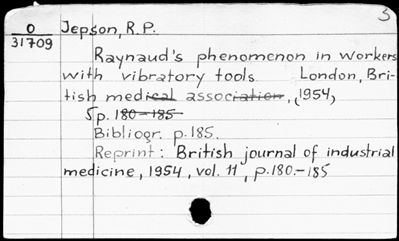 5
0 Jepson, R.P.
31709
Raynaud's phenomenon in workers
with vibratory tools London, Bri-
tish medical association, (1954)
5p. 180-185
Bibliogr. p.185.
Reprint: British journal of industrial
medicine, 1954, vol. 11, p.180.-185